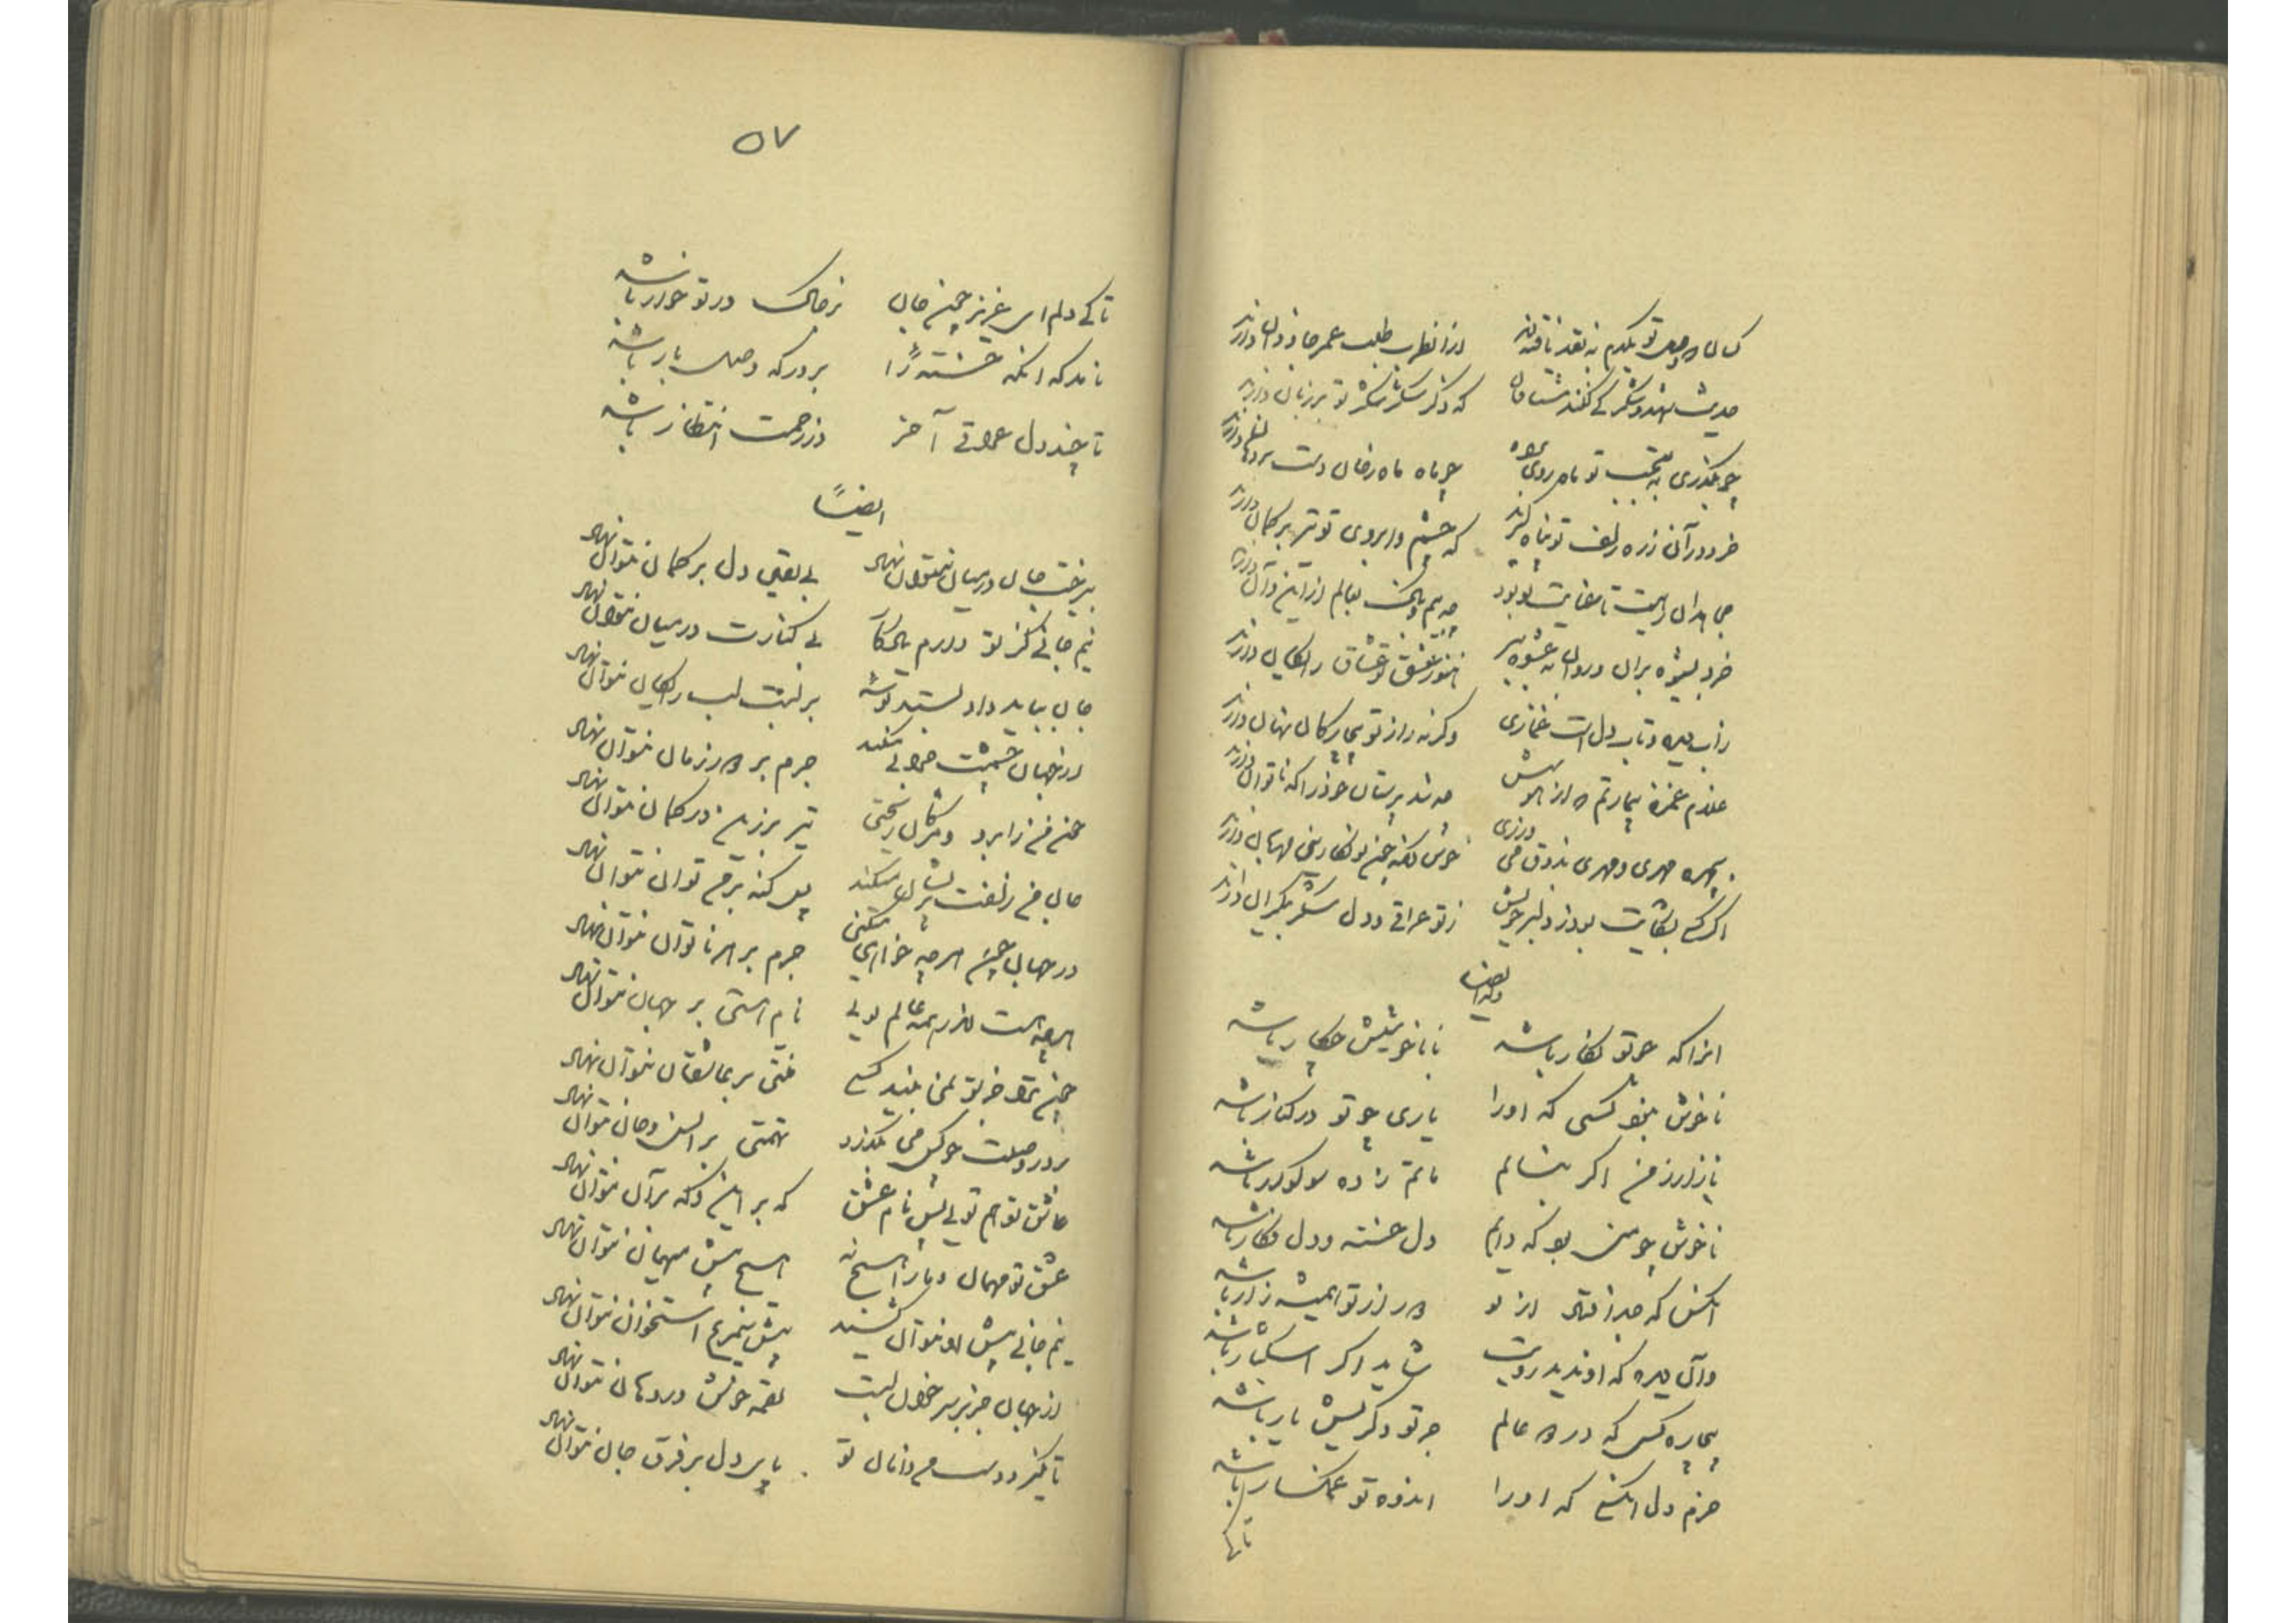 کسان که وصل تو یکدم به نقد یافته‌اند از آن طرب طلب عمر جاودان دارند
حدیث قند و شکر کی کنند مشتاقان که ذکر شکر تو بر زبان دارند
چو بگذری به تعجب تو ماه روی به راه چو ماه ماه رخان دست بر دهان دارند
خرد در آن زره زلف تو پناه گرفت که چشم و ابروی تو تیر بر کمان دارند
جهانیان چه هم باک بعالم از این و آن دارند
خرد بشیوه بران دروان به عشوه ببر هنوز عشق تو عشاق رایگان دارند
ز آب دیده و تاب دل است غمازی وگرنه راز تو بیچارگان نهان دارند
علاوه غمزه بیمارتم که از هوش چه شد پرستان خود را که ناتوان دارند
بچهره مهری و مهری بذوق می ورزی خوش کنند چنین میهمان دارند
اگر کسی بشکایت بود ز دلبر خویش ز تو عراقی و دل شکر بیکران دارند
وله ایضا
انرا که چو تو نگار باشد با خویشتنش چکار باشد
ناخوش نبود کسی که او را یاری چو تو در کنار باشد
مازار ز من اگر بنالم ماتم زده سوگوار باشد
ناخوش چو منی بود که دایم دل خسته و دل فکار باشد
انکس که جدا فتاد از تو دور از تو همیشه زار باشد
وآن دیده که او ندید رویت شاید اگر اشکبار باشد
بیچاره کسی که در دو عالم جز تو دگریش یار باشد
خرم دل انکسی که او را اندوه تو غمگسار باشد
تا کی
۵۷
تا کی دلم ای عزیز چون جان بر خاک در تو خوار باشد
نامد که انکه خسته را بر درگه وصل بار باشد
تا چند دل عراقی آخر در زحمت انتظار باشد
ایضاً
بی رخت جان در میان نتوان نهاد بی یقین دل بر گمان نتوان نهاد
نیم جانی کز تو دارم یادگار بی کنارت در میان نتوان نهاد
جان بباید داد و بستد بوسه بر لبت لب رایگان نتوان نهاد
در جهان چشمت خرابی میکند جرم بر دور زمان نتوان نهاد
خون من ز ابرو و مژگان ریختی تیر برزین در کمان نتوان نهاد
جان من زلفت پریشان میکند پس گنه بر من توان نتوان نهاد
در جهان چون هر چه خواهی میکنی جرم بر هر ناتوان نتوان نهاد
هر چه هست اندر همه عالم تویی نام هستی بر جهان نتوان نهاد
چون ترا جز تو نمی بیند کسی منتی بر عاشقان نتوان نهاد
بر در وصلت چو کس می نگذرد تهمتی بر انس و جان نتوان نهاد
عاشق تو هم تویی پس نام عشق گه بر این و گه بر آن نتوان نهاد
عشق تو مهمان و ما را هیچ نه هیچ پیش میهمان نتوان نهاد
نیم جانی پیش او نتوان کشید پیش سیمرغ استخوان نتوان نهاد
از جهان جز بر سر خوان لبت لقمه خوش در دهان نتوان نهاد
تا نگیرد دست من دامان تو پای دل بر فرق جان نتوان نهاد